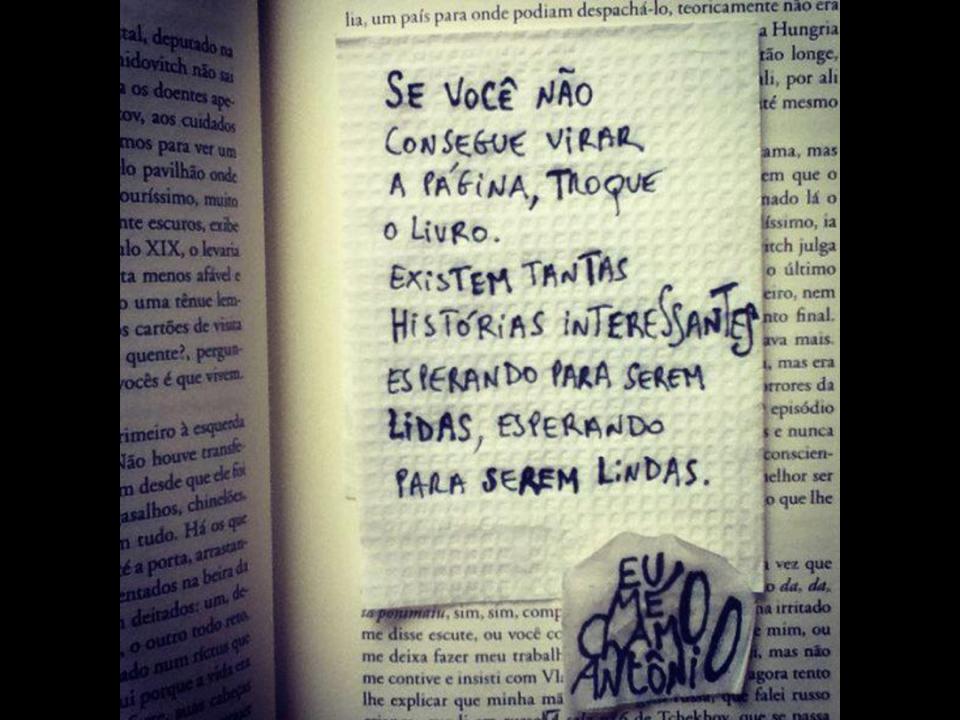 tal, deputado na
nidovitch não sai
a os doentes ape-
tov, aos cuidados
mos para ver um
lo pavilhão onde
ouríssimo, muito
nte escuros, exibe
ulo XIX, o levaria
ta menos afável e
o uma tênue lem-
s cartões de visita
quente?, pergun-
vocês é que vivem.
rimeiro à esquerda
Não houve transfe-
m desde que ele foi
asalhos, chinelões,
n tudo. Há os que
té a porta, arrastan-
entados na beira da
deitados: um, de-
, o outro todo reto,
ado num ríctus que
ui porque a vida era
suas cabeças
lia, um país para onde podiam despachá-lo, teoricamente não era
a Hungria
tão longe,
ali, por ali
até mesmo
ama, mas
em que o
nado lá o
íssimo, ia
itch julga
o último
eiro, nem
nto final.
ava mais.
, mas era
rrores da
episódio
s e nunca
conscien-
elhor ser
o que lhe
SE VOCÊ NÃO
CONSEGUE VIRAR
A PÁGINA, TROQUE
O LIVRO.
EXISTEM TANTAS
HISTÓRIAS INTERESSANTES
ESPERANDO PARA SEREM
LIDAS, ESPERANDO
PARA SEREM LINDAS.
EU
ME
CHAMO
ANTÔNIO
a vez que
o da, da,
ta ponimaiu, sim, sim, comp
na irritado
me disse escute, ou você co
e mim, ou
me deixa fazer meu trabalh
i, mas não
me contive e insisti com Vl
agora tento
lhe explicar que minha mã
russa, que falei russo
de Tchekhov, que se passa